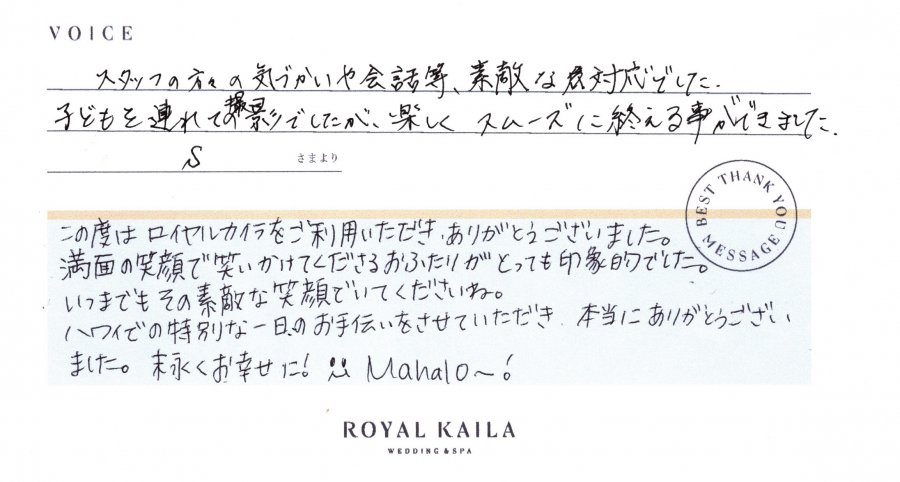 VOICE
スタッフの方々の気づかいや会話等、素敵な対応でした.
子どもを連れて撮影でしたが、楽しく スムーズに終える事ができました.
S さまより
BEST THANK YOU MESSAGE
この度は ロイヤルカイラをご利用いただき、ありがとうございました。
満面の笑顔で笑いかけてくださるおふたりがとっても印象的でした。
いつまでもその素敵な笑顔でいてくださいね。
ハワイでの特別な一日のお手伝いをさせていただき 本当にありがとうござい
ました。 末永くお幸せに! Mahalo〜!
ROYAL KAILA
WEDDING & SPA